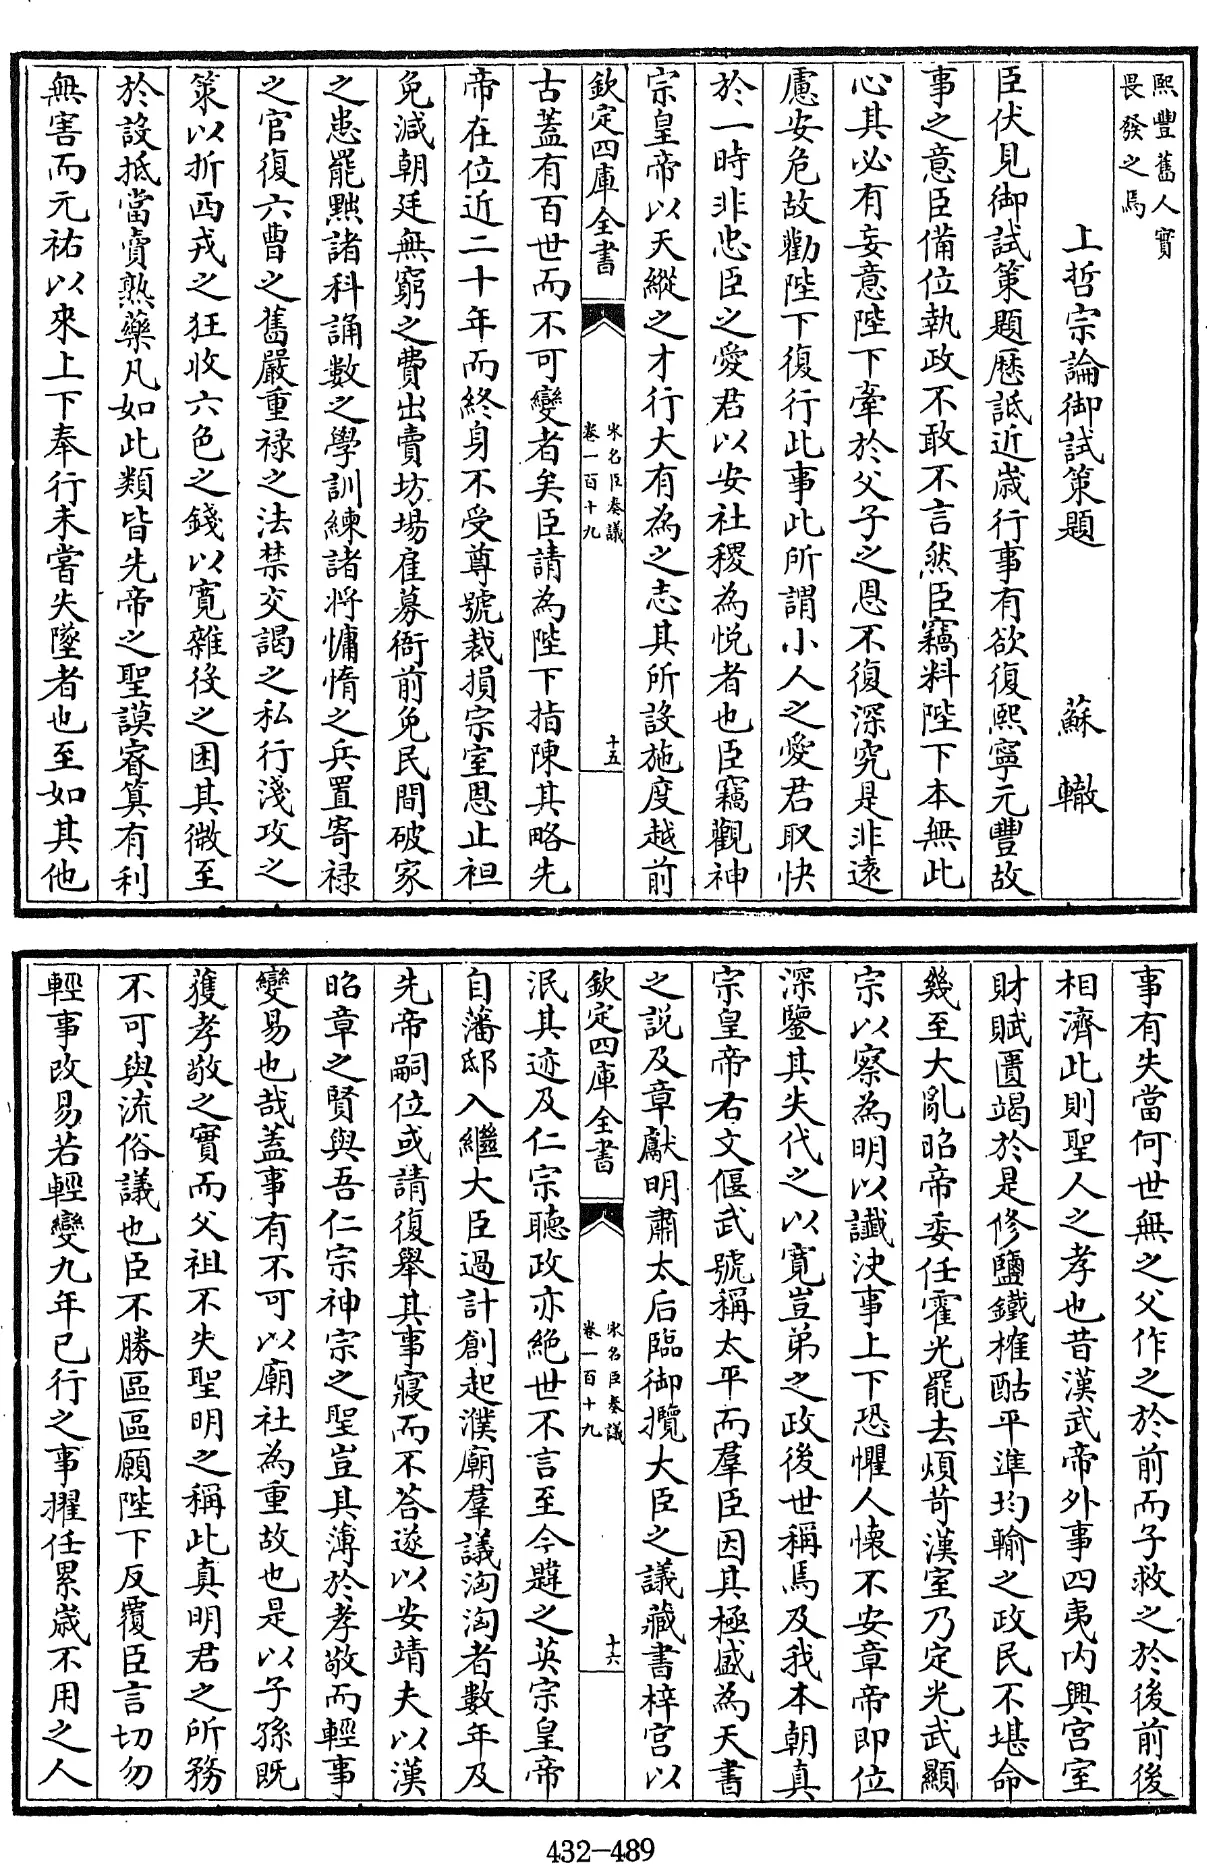 熙豐舊人實
畏發之焉
上哲宗論御試策題 蘇轍
臣伏見御試策題歴詆近嵗行事有欲復熙寧元豐故
事之意臣備位執政不敢不言然臣竊料陛下本無此
心其必有妄意陛下牽於父子之恩不復深究是非遠
慮安危故勸陛下復行此事此所謂小人之愛君取快
於一時非忠臣之愛君以安社稷為悦者也臣竊觀神
宗皇帝以天縱之才行大有為之志其所設施度越前
欽定四庫全書
宋名臣奏議
卷一百十九
十五
古蓋有百世而不可變者矣臣請為陛下指陳其略先
帝在位近二十年而終身不受尊號裁損宗室恩止袒
免減朝廷無窮之費出賣坊場雇募衙前免民間破家
之患罷黜諸科誦數之學訓練諸將慵惰之兵置寄禄
之官復六曹之舊嚴重禄之法禁交謁之私行淺攻之
策以折西戎之狂收六色之錢以寛雜役之困其微至
於設抵當賣熟藥凡如此類皆先帝之聖謨睿算有利
無害而元祐以來上下奉行未嘗失墜者也至如其他
事有失當何世無之父作之於前而子救之於後前後
相濟此則聖人之孝也昔漢武帝外事四夷内興宫室
財賦匱竭於是修鹽鐵榷酤平準均輸之政民不堪命
幾至大亂昭帝委任霍光罷去煩苛漢室乃定光武顯
宗以察為明以讖決事上下恐懼人懐不安章帝即位
深鑒其失代之以寛豈弟之政後世稱焉及我本朝真
宗皇帝右文偃武號稱太平而羣臣因其極盛為天書
之説及章獻明肅太后臨御攬大臣之議藏書梓宫以
欽定四庫全書
宋名臣奏議
卷一百十九
十六
泯其迹及仁宗聽政亦絶世不言至今韙之英宗皇帝
自藩邸入繼大臣過計創起濮廟羣議洶洶者數年及
先帝嗣位或請復舉其事寢而不荅遂以安靖夫以漢
昭章之賢與吾仁宗神宗之聖豈其薄於孝敬而輕事
變易也哉蓋事有不可以廟社為重故也是以子孫既
獲孝敬之實而父祖不失聖明之稱此真明君之所務
不可與流俗議也臣不勝區區願陛下反覆臣言切勿
輕事改易若輕變九年已行之事擢任累嵗不用之人
432-489